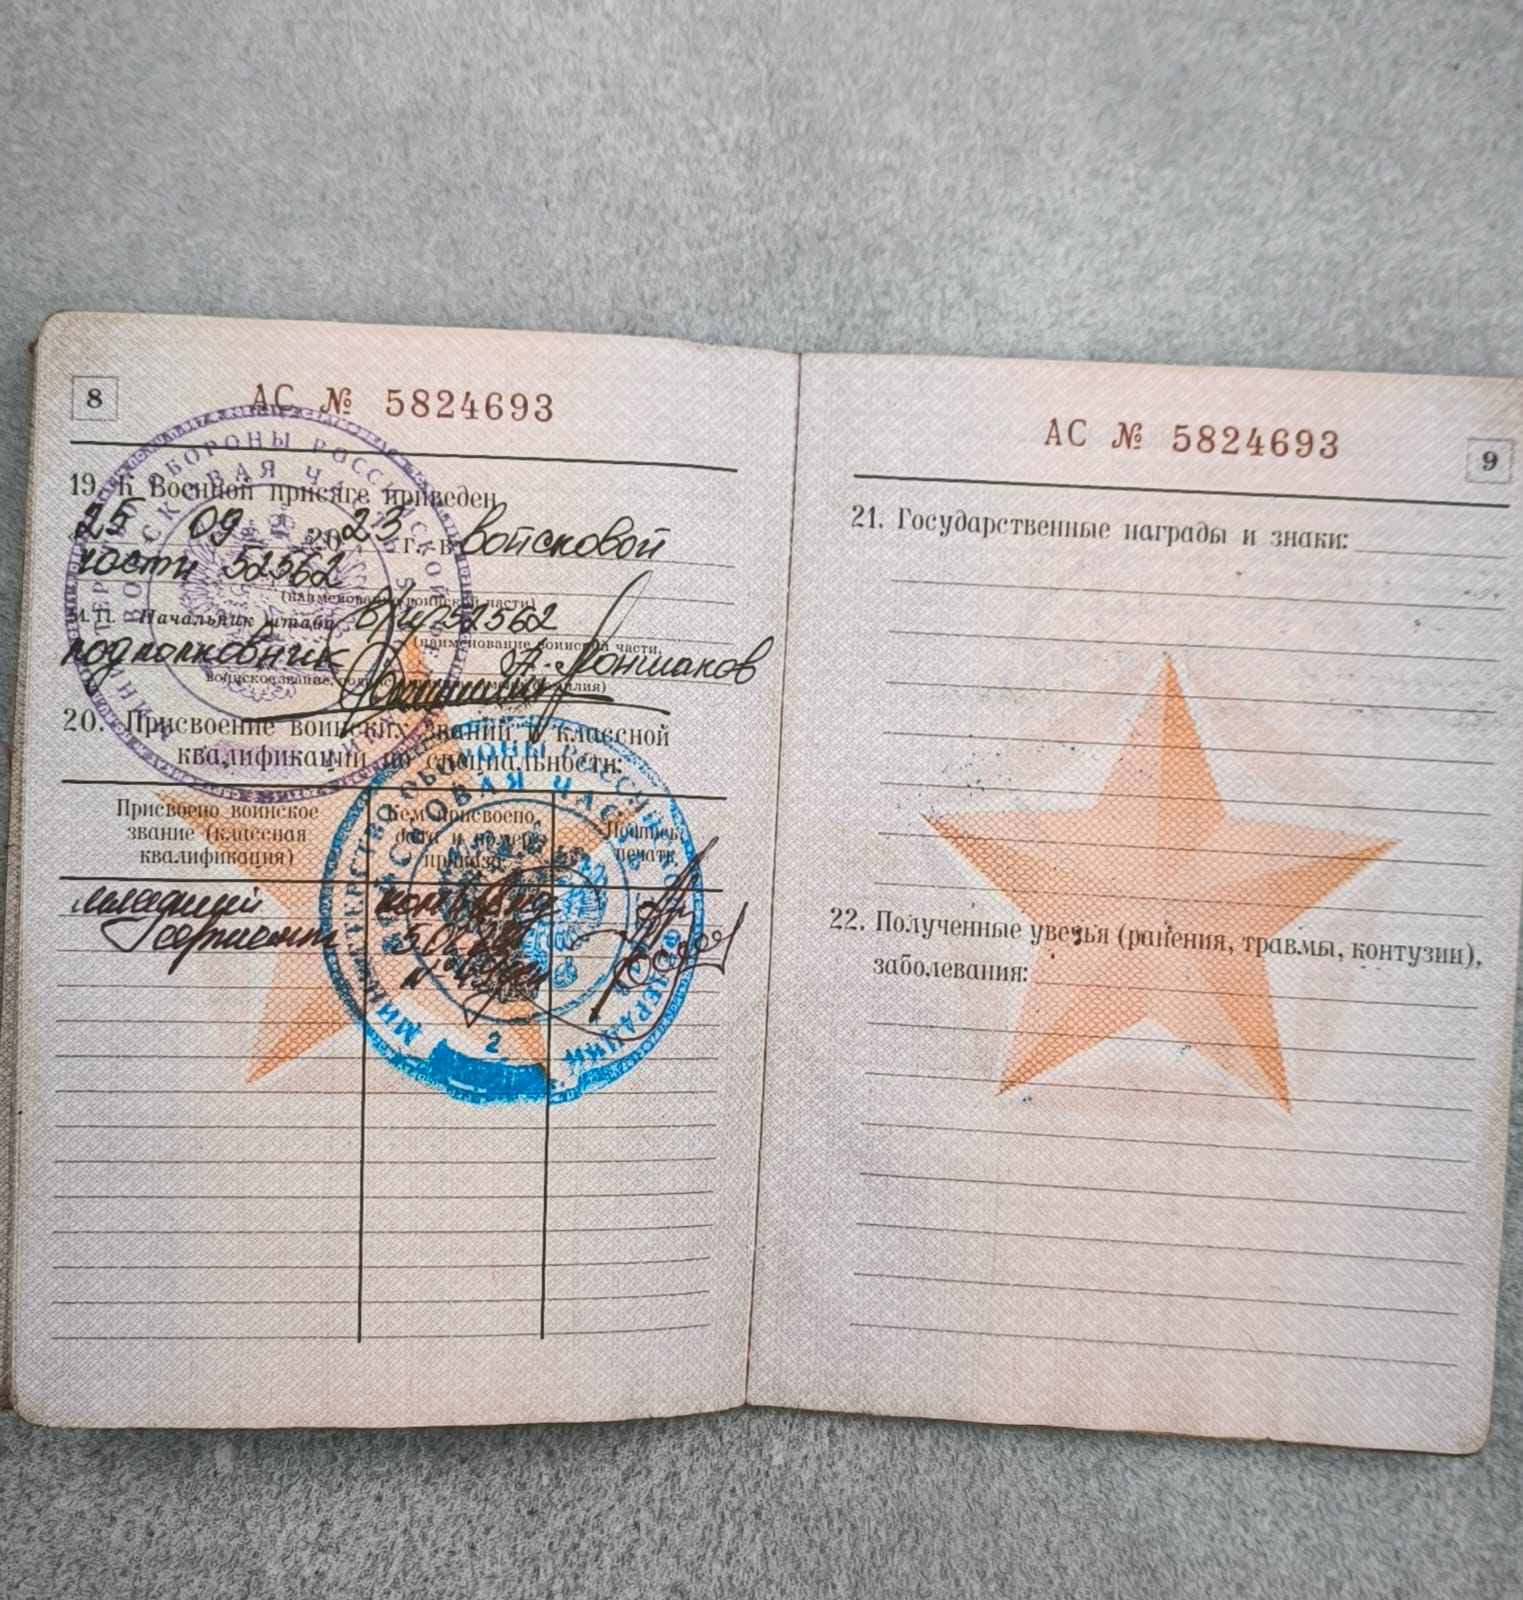 8
АС № 5824693
19. К Военной присяге приведен
25 09 2023 г. в войсковой
части 52562
(наименование воинской части)
М.П. Начальник штаба в/ч 52562
(наименование воинской части,
подполковник А. Лоншаков
воинское звание, подпись
20. Присвоение воинских званий и классной
квалификации по специальности:
Присвоено воинское
звание (классная
квалификация)
Кем присвоено,
дата и номер
приказа
Подпись,
печать
младший
сержант
МИНИСТЕРСТВО ОБОРОНЫ РОССИЙСКОЙ ФЕДЕРАЦИИ
ВОЙСКОВАЯ ЧАСТЬ
2
АС № 5824693
9
21. Государственные награды и знаки:
22. Полученные увечья (ранения, травмы, контузии),
заболевания: